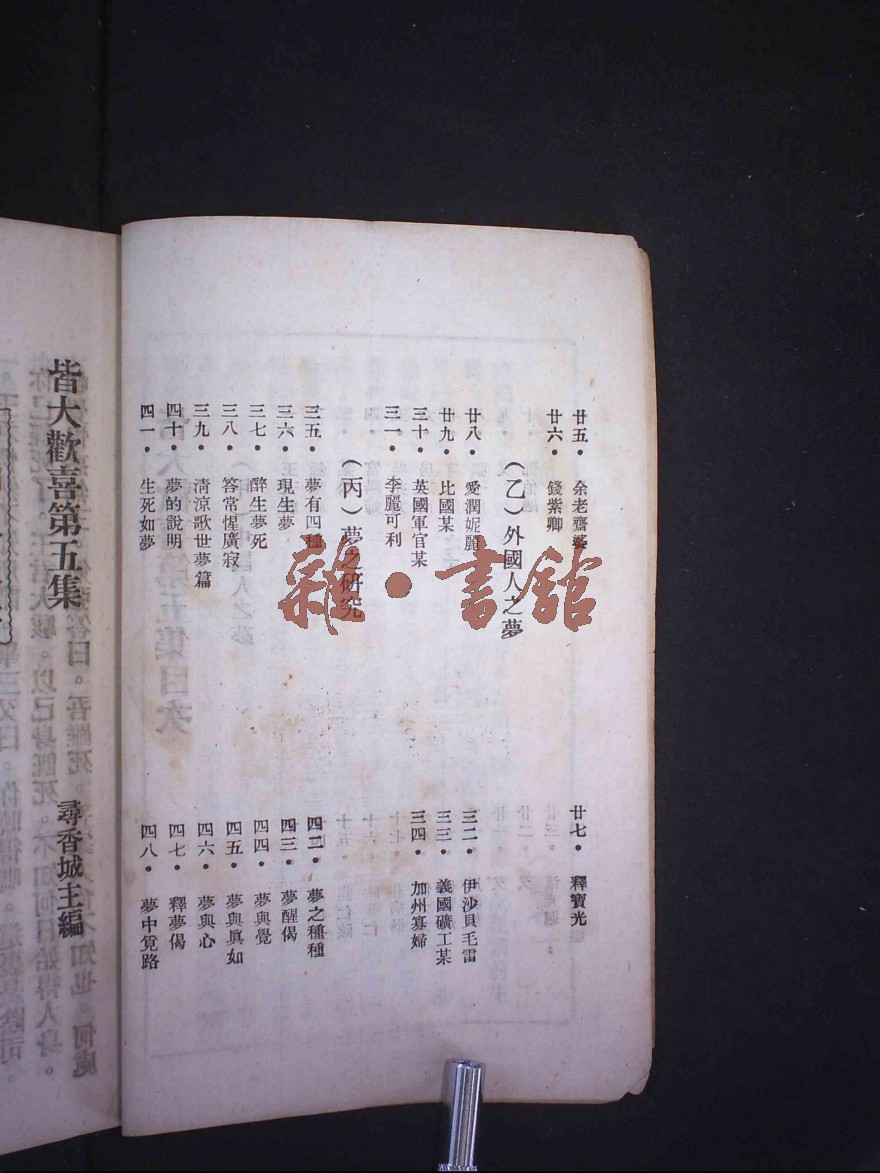 廿五・余老齋婆
廿六・錢紫卿
廿七・釋寶光
（乙）外國人之夢
廿八・愛潤妮麗
廿九・比國某
三十・英國軍官某
三一・李麗可利
三二・伊沙貝毛雷
三三・義國礦工某
三四・加州寡婦
（丙）夢之研究
三五・夢有四種
三六・現生夢
三七・醉生夢死
三八・答常惺廣寂
三九・清涼歌世夢篇
四十・夢的說明
四一・生死如夢
四二・夢之種種
四三・夢醒偈
四四・夢與覺
四五・夢與眞如
四六・夢與心
四七・釋夢偈
四八・夢中覓路
皆大歡喜第五集
尋香城主編
雜・書館